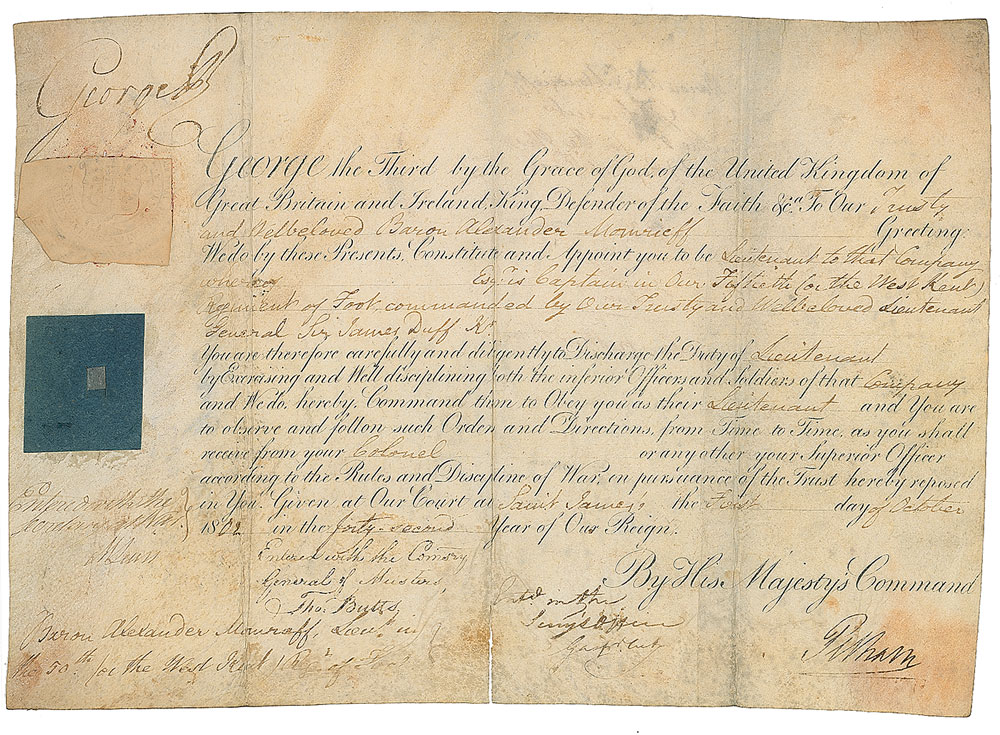 George R
George the Third by the Grace of God, of the United Kingdom of
Great Britain and Ireland, King, Defender of the Faith &ca. To Our Trusty
and Welbeloved Baron Alexander Moncrieff Greeting:
We do by these Presents, Constitute and Appoint you to be Lieutenant to that Company
whereof Esqr. is Captain in Our Fiftieth (or the West Kent)
Regiment of Foot commanded by Our Trusty and Welbeloved Lieutenant
General Sir James Duff Kt.
You are therefore carefully and diligently to Discharge the Duty of Lieutenant
by Exercising and Well disciplining both the inferior Officers and Soldiers of that Company
and We do hereby Command them to Obey you as their Lieutenant and You are
to observe and follow such Orders and Directions, from Time to Time, as you shall
receive from your Colonel or any other your Superior Officer
according to the Rules and Discipline of War, in pursuance of the Trust hereby reposed
in You. Given at Our Court at Saint James's the First day of October
1802 in the forty-second Year of Our Reign.
By His Majesty's Command
Pelham
Entered with the
Secretary at War
Entered with the Comsry
General of Musters
Tho. Butts
Baron Alexander Moncrieff, Lieut. in
the 50th (or the West Kent) Regt. of Foot